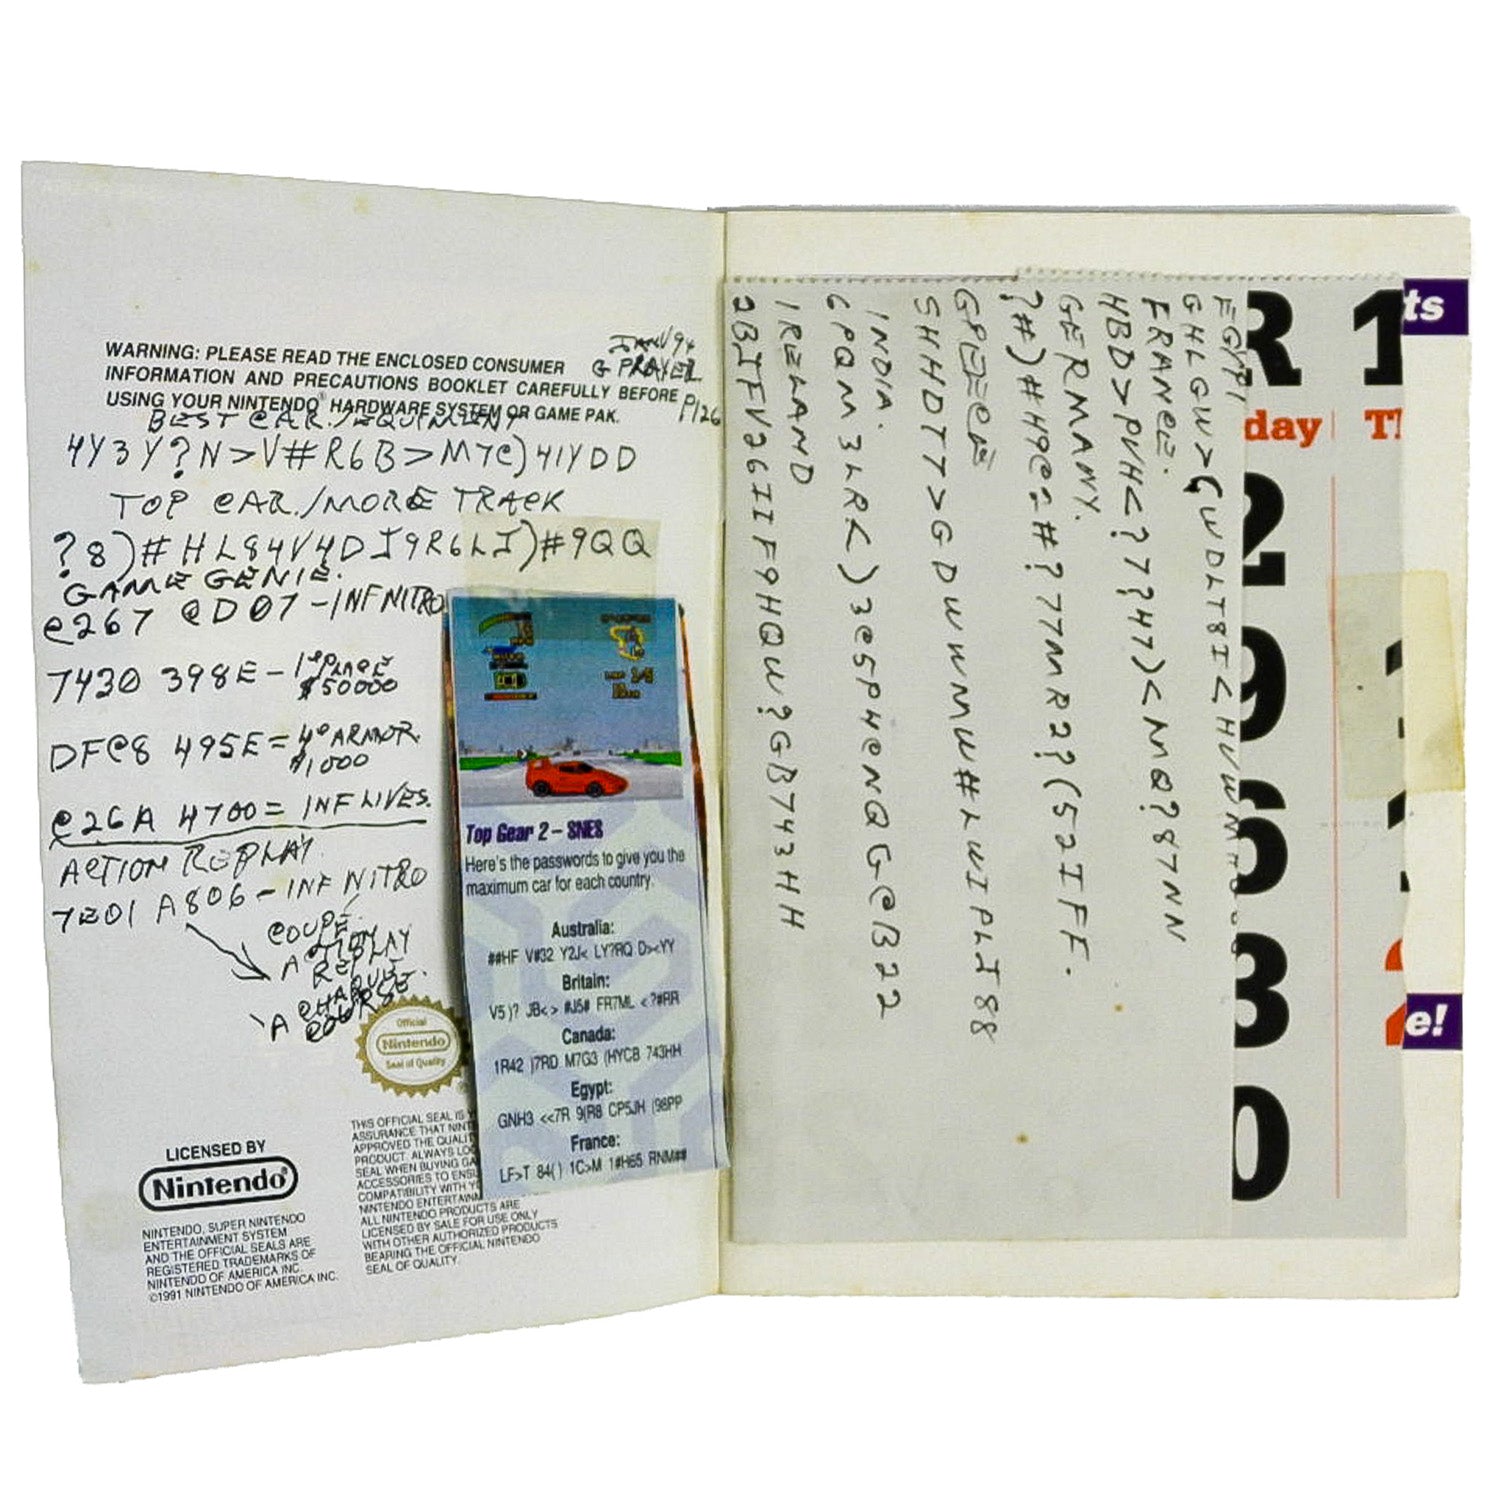 WARNING: PLEASE READ THE ENCLOSED CONSUMER
INFORMATION AND PRECAUTIONS BOOKLET CAREFULLY BEFORE
USING YOUR NINTENDO® HARDWARE SYSTEM OR GAME PAK.
JANV94
G PRAYER
P126
BEST CAR./EQUIPMENT
4Y3Y?N>V#R6B>M7C)41YDD
TOP CAR./MORE TRACK
?8)#HL84V4DJ9R6LJ)#9QQ
GAME GENIE.
C267 CD07-INFNITRO
7430 398E-1º PLACE
$50000
DFC8 495E=4º ARMOR.
$1000
C26A 4700=INF LIVES.
ACTION REPLAY
7E01 A806-INF NITRO
COUPE
ACTION
REPLAY
A CHAQUE
COURSE.
Top Gear 2 – SNES
Here's the passwords to give you the
maximum car for each country.
Australia:
##HF V#32 Y2J< LY?RQ D><YY
Britain:
V5)? JB<> #J5# FR7ML <?#RR
Canada:
1R42 )7RD M7G3 (HYCB 743HH
Egypt:
GNH3 <<7R 9(R8 CP5JH (98PP
France:
LF>T 84() 1C>M 1#H65 RNM##
Official
Nintendo
Seal of Quality
LICENSED BY
Nintendo®
NINTENDO, SUPER NINTENDO
ENTERTAINMENT SYSTEM
AND THE OFFICIAL SEALS ARE
REGISTERED TRADEMARKS OF
NINTENDO OF AMERICA INC.
©1991 NINTENDO OF AMERICA INC.
THIS OFFICIAL SEAL IS Y
ASSURANCE THAT NINT
APPROVED THE QUALIT
PRODUCT. ALWAYS LOO
SEAL WHEN BUYING GA
ACCESSORIES TO ENSU
COMPATIBILITY WITH Y
NINTENDO ENTERTAINM
ALL NINTENDO PRODUCTS ARE
LICENSED BY SALE FOR USE ONLY
WITH OTHER AUTHORIZED PRODUCTS
BEARING THE OFFICIAL NINTENDO
SEAL OF QUALITY.
EGYPT
GHLGW>(WDLT8I<HVWM
FRANCE.
HBD>PVH<?7?47)<MQ?87NN
GERMANY.
?#)#49C2#?77MR2?(52JFF.
GREECE
SHHDT7>GDWWMW#LWJPLJ88
INDIA.
6PQM3LRK)3C5P4CNQGCB22
IRELAND
2BJFV26JJF9HQW?GB743HH
R 1
day Th
2
9
6
3
0
ts
e!